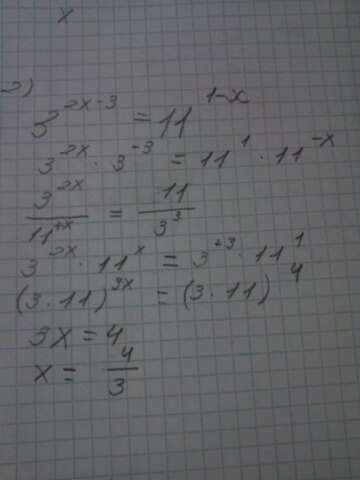 x
2)
3^{2x-3} = 11^{1-x}
3^{2x} · 3^{-3} = 11^{1} · 11^{-x}
\frac{3^{2x}}{11^{+x}} = \frac{11}{3^{3}}
3^{2x} · 11^{x} = 3^{+3} · 11^{1}
(3·11)^{3x} = (3·11)^{4}
3x = 4
x = \frac{4}{3}